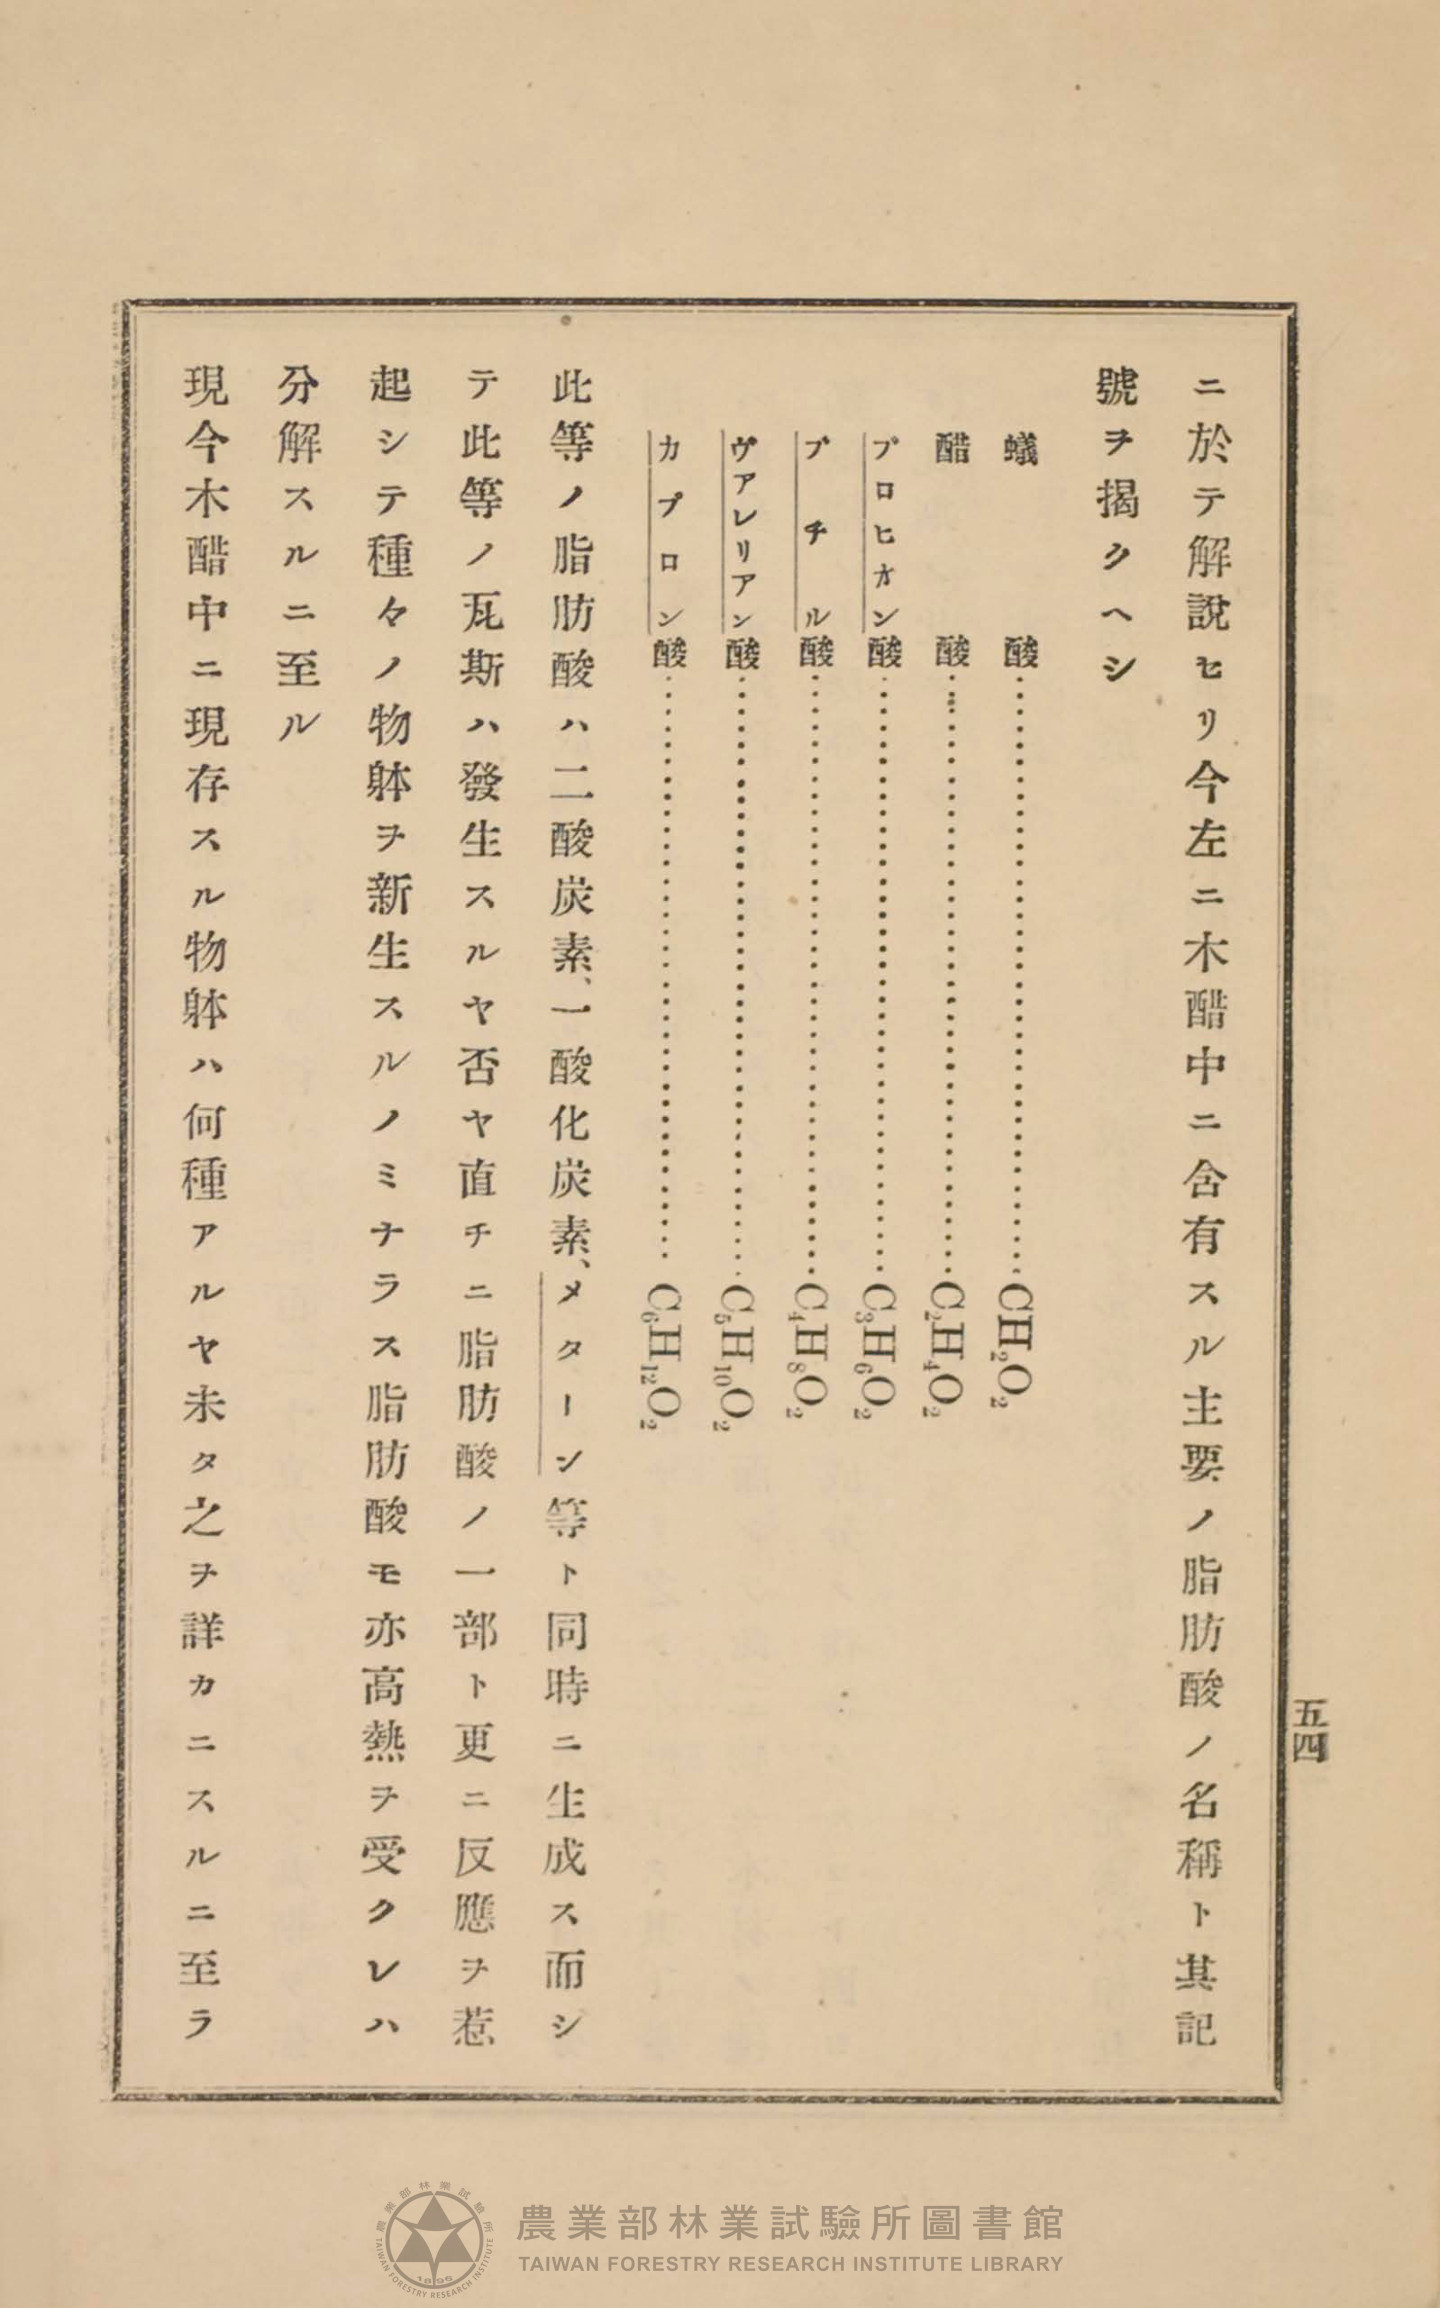 ニ於テ解說セリ今左ニ木醋中ニ含有スル主要ノ脂肪酸ノ名稱ト其記
號ヲ揭クヘシ
蟻酸……CH₂O₂
醋酸……C₂H₄O₂
プロヒオン酸……C₃H₆O₂
ブチル酸……C₄H₈O₂
ヴアレリアン酸……C₅H₁₀O₂
カプロン酸……C₆H₁₂O₂
此等ノ脂肪酸ハ二酸炭素、一酸化炭素、メターン等ト同時ニ生成ス而シ
テ此等ノ瓦斯ハ發生スルヤ否ヤ直チニ脂肪酸ノ一部ト更ニ反應ヲ惹
起シテ種々ノ物躰ヲ新生スルノミナラス脂肪酸モ亦高熱ヲ受クレハ
分解スルニ至ル
現今木醋中ニ現存スル物躰ハ何種アルヤ未タ之ヲ詳カニスルニ至ラ
五四
農業部林業試驗所圖書館
TAIWAN FORESTRY RESEARCH INSTITUTE LIBRARY
農業部林業試驗所
TAIWAN FORESTRY RESEARCH INSTITUTE
1896